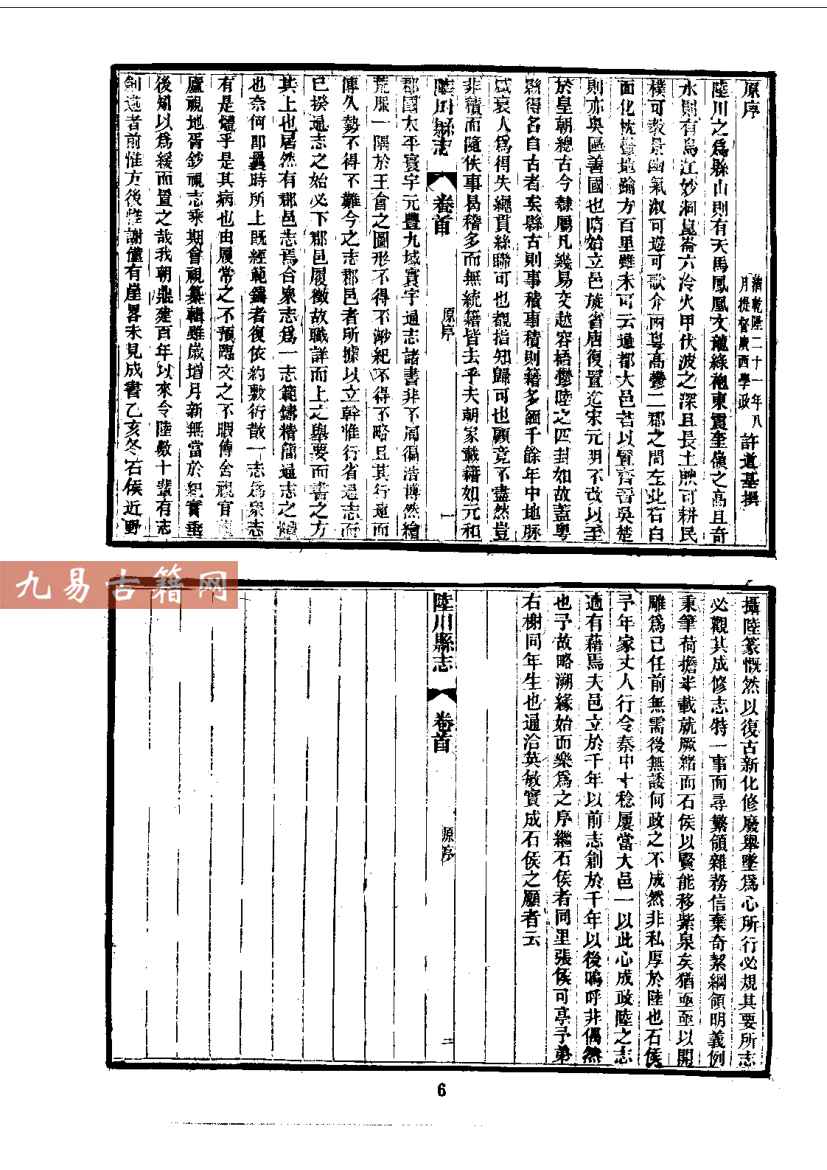 原序
清乾隆二十一年八月提督廣西學政許道基撰
陸川之爲縣山則有天馬鳳凰文龍綠袍東貫奎嶺之高且奇
水則有烏江妙洞崑崙六泠火甲伏波之深且長土腴可耕民
樸可教景幽氣淑可遊可歌介兩粵高鬱二郡之間左北石白
面化枕鬱地踰方百里雖未可云通都大邑若以賢齊晉吳楚
則亦奥區善國也隋始立邑旋省唐復置迄宋元明不改以至
於皇朝總古今隸屬凡幾易交越容梧鬱陸之四封如故蓋粵
縣得名自古者矣縣古則事積事積則籍多緬千餘年中地脉
盛衰人爲得失繩貫絲聯可也觀指知歸可也顧竟不盡然豈
非積而隨佚事曷稽多而無統籍皆去乎夫朝家載籍如元和
陸川縣志
卷首
原序
一
郡國太平寰宇元豐九域寰宇通志諸書非不周徧浩博然檜
荒服一隅於王會之圖形不得不渺紀不得不略且其行遠而
傳久勢不得不難今之志郡邑者所據以立幹惟行省通志而
已揆通志之始必下郡邑履徵故職詳而上之舉要而書之方
其上也居然有郡邑志焉合衆志爲一志範鎔精簡通志之體
也奈何即曩時所上既經範鑄者復依約敷衍散一志爲衆志
有是體乎是其病也由履常之不預臨文之不暇傳舍視官
廬視地胥鈔視志乘期會視纂輯雖歲增月新無當於紀實垂
後矧以爲緩而置之哉我朝鼎建百年以來令陸數十輩有志
創造者前惟方後惟謝僅有崖畧未見成書乙亥冬石侯近野
攝陸篆慨然以復古新化修廢舉墜爲心所行必規其要所志
必觀其成修志特一事而尋繁領雜務信棄奇絜綱領明義例
秉筆荷擔半載就厥緒而石侯以賢能移紫泉矣猶亟亟以開
雕爲已任前無需後無諉何政之不成然非私厚於陸也石侯
予年家丈人行令秦中十稔屢當大邑一以此心成政陸之志
適有藉焉夫邑立於千年以前志創於千年以後嗚呼非偶然
也予故略溯緣始而樂爲之序繼石侯者同里張侯可亭予弟
右榭同年生也通洽英敏實成石侯之願者云
陸川縣志
卷首
原序
二
九易古籍网
6